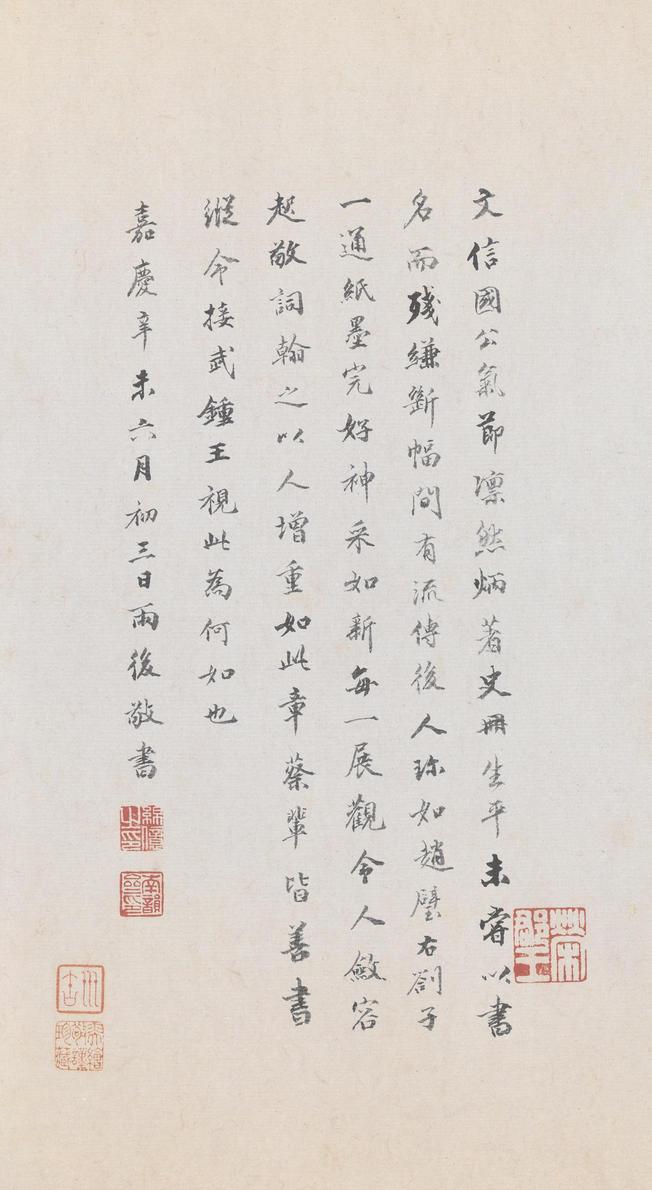 文信國公氣節凜然炳著史冊生平未嘗以書
名而殘縑斷幅間有流傳後人珎如趙璧右劄子
一通紙墨完好神采如新每一展觀令人斂容
起敬詞翰之以人增重如此章蔡輩皆善書
縱令接武鍾王視此為何如也
嘉慶辛未六月初三日雨後敬書